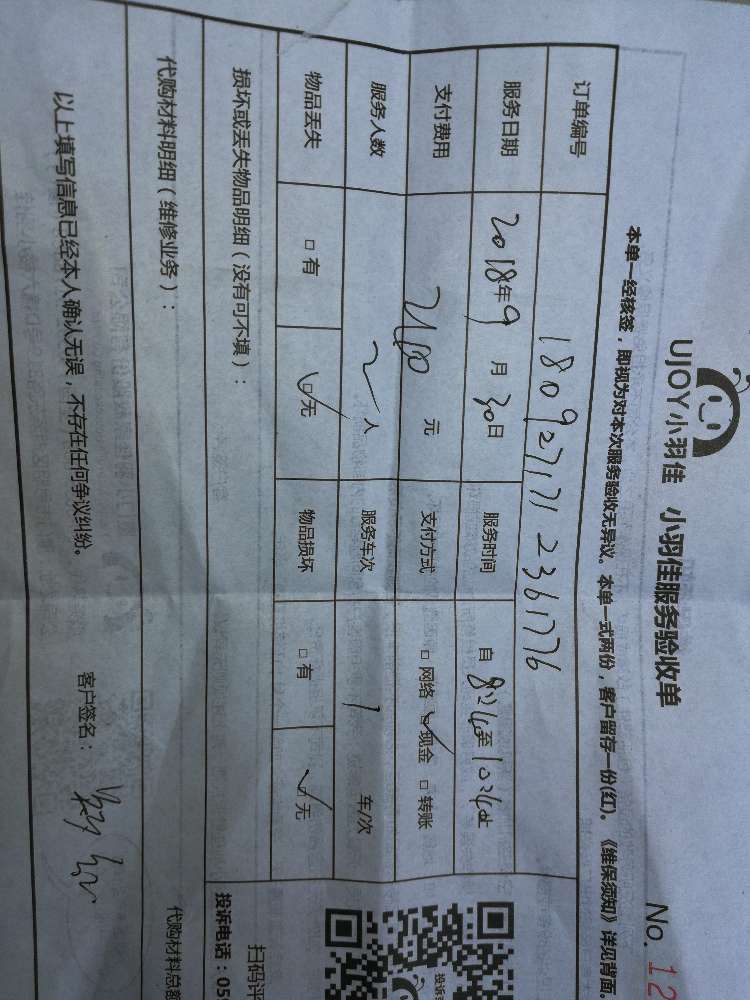 UJOY小羽佳 小羽佳服务验收单
No. 12
本单一经核签，即视为对本次服务验收无异议。本单一式两份，客户留存一份(红)。《维保须知》详见背面。
订单编号 1809271712361776
服务日期 2018年9月30日 服务时间 自 至
支付费用 元 支付方式 □ 网络 ☑ 现金 □ 转账
服务人数 2人 服务车次 1 车/次
物品丢失 □ 有 ☑ 无 物品损坏 □ 有 ☑ 无
损坏或丢失物品明细（没有可不填）：
扫码评
投诉电话：05
代购材料明细（维修业务）：
代购材料总额
以上填写信息已经本人确认无误，不存在任何争议纠纷。 客户签名：